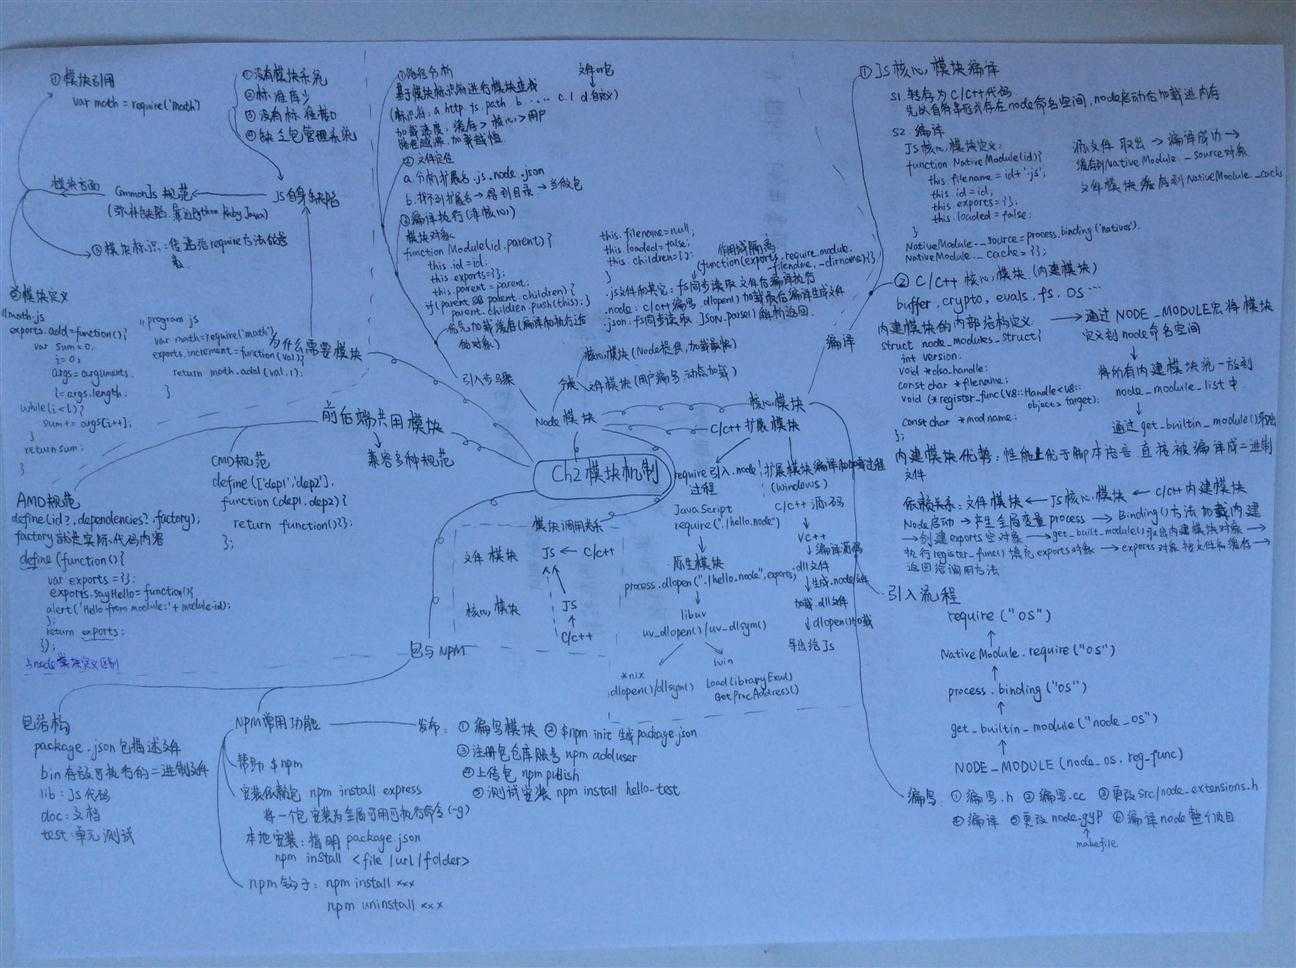 Ch2 模块机制
为什么需要模块
JS自身缺陷
①没有模块系统
②标准库少
③没有标准接口
④缺乏包管理系统
CommonJS 规范
(弥补缺陷 靠近Python Ruby Java)
模块方面
①模块引用
var math = require('math')
③模块标识:传递给require方法的参数
②模块定义
//math.js
exports.add=function(){
var sum=0,
i=0,
args=arguments,
l=args.length;
while(i<l){
sum+= args[i++];
}
return sum;
}
//program.js
var math=require('math');
exports.increment=function(val){
return math.add(val,1);
}
前后端共用模块
兼容多种规范
CMD规范
define(['dep1','dep2'],
function(dep1,dep2){
return function(){};
};
AMD规范
define(id?,dependencies?,factory);
factory就是实际代码内容
define(function(){
var exports={};
exports.sayHello=function(){
alert('Hello from module:'+module.id);
};
return exports;
});
与node模块定义区别
Node模块
核心模块(Node提供,加载最快)
文件模块(用户编写 动态加载)
引入步骤
①路径分析
基于模块标识符进行模块查找
文件or包
加载速度:缓存>核心>用户
路径越深,加载越慢
②文件定位
a.分析扩展名 .js .node .json
b.找不到扩展名→得到目录→当做包
③编译执行
模块对象
function Module(id,parent){
this.id=id;
this.exports={};
this.parent=parent;
if(parent && parent.children){
parent.children.push(this);}
this.filename=null;
this.loaded=false;
this.children=[];
}
作用域隔离
(function(exports,require,module,
__filename,__dirname){})
.js文件和其它:fs同步读取文件后编译执行
.node:C/C++编写 dlopen()加载最后编译生成文件
.json:fs同步读取 JSON.parse()解析返回
核心模块
编译
①JS核心模块编译
S1 转存为C/C++代码
S2 编译
JS核心模块定义:
function NativeModule(id){
this.filename=id+'.js';
this.id=id;
this.exports={};
this.loaded=false;
}
NativeModule._source=process.binding('natives');
NativeModule._cache={};
源文件 取出→编译成功→
缓存到NativeModule._cache对象
②C/C++ 核心模块 (内建模块)
buffer, crypto, evals, fs, os …
内建模块的内部结构定义
struct node_module_struct{
int version;
void *dso_handle;
const char *filename;
void (*register_func)(v8::Handle<v8::
object> target);
const char *modname;
};
→通过NODE_MODULE宏将模块
定义到node命名空间
将所有内建模块统一放到
node_module_list中
通过get_builtin_module()取出
内建模块优势:性能上优于脚本语言 直接被编译成二进制
文件
依赖关系:文件模块←JS核心模块←C/C++内建模块
Node启动→产生全局变量process→Binding()方法加载内建
→创建exports空对象→get_built_module()取出内建模块对象→
执行register_func()填充exports对象→exports对象按文件名缓存→
返回给调用方法
引入流程
require("os")
NativeModule.require("os")
process.binding("os")
get_builtin_module("node_os")
NODE_MODULE(node_os, reg_func)
编写
①编写.h ②编写.cc ③更改src/node_extensions.h
④编译 ⑤更改node.gyp ⑥编译node整个项目
makefile
C/C++扩展模块
require引入.node
过程
JavaScript
require("./hello.node")
原生模块
process.dlopen("./hello.node",exports)
libuv
uv_dlopen()/uv_dlsym()
*nix
dlopen()/dlsym()
win
LoadLibraryExW()
GetProcAddress()
扩展模块编译和加载过程
(windows)
C/C++源码
VC++
编译源码
.dll文件
生成.node文件
加载.dll文件
dlopen()加载
导出给JS
模块调用关系
文件模块
JS ← C/C++
核心模块
JS
C/C++
包与NPM
包结构
package.json包描述文件
bin存放可执行的二进制文件
lib:JS代码
doc:文档
test:单元测试
NPM常用功能
帮助 $npm
安装依赖包 npm install express
将一个包安装为全局可用可执行命令(-g)
本地安装:指明package.json
npm install <file/url/folder>
npm钩子:npm install xxx
npm uninstall xxx
发布:①编写模块 ②$npm init 生成package.json
③注册包仓库账号 npm adduser
④上传包 npm publish
⑤测试安装 npm install hello-test